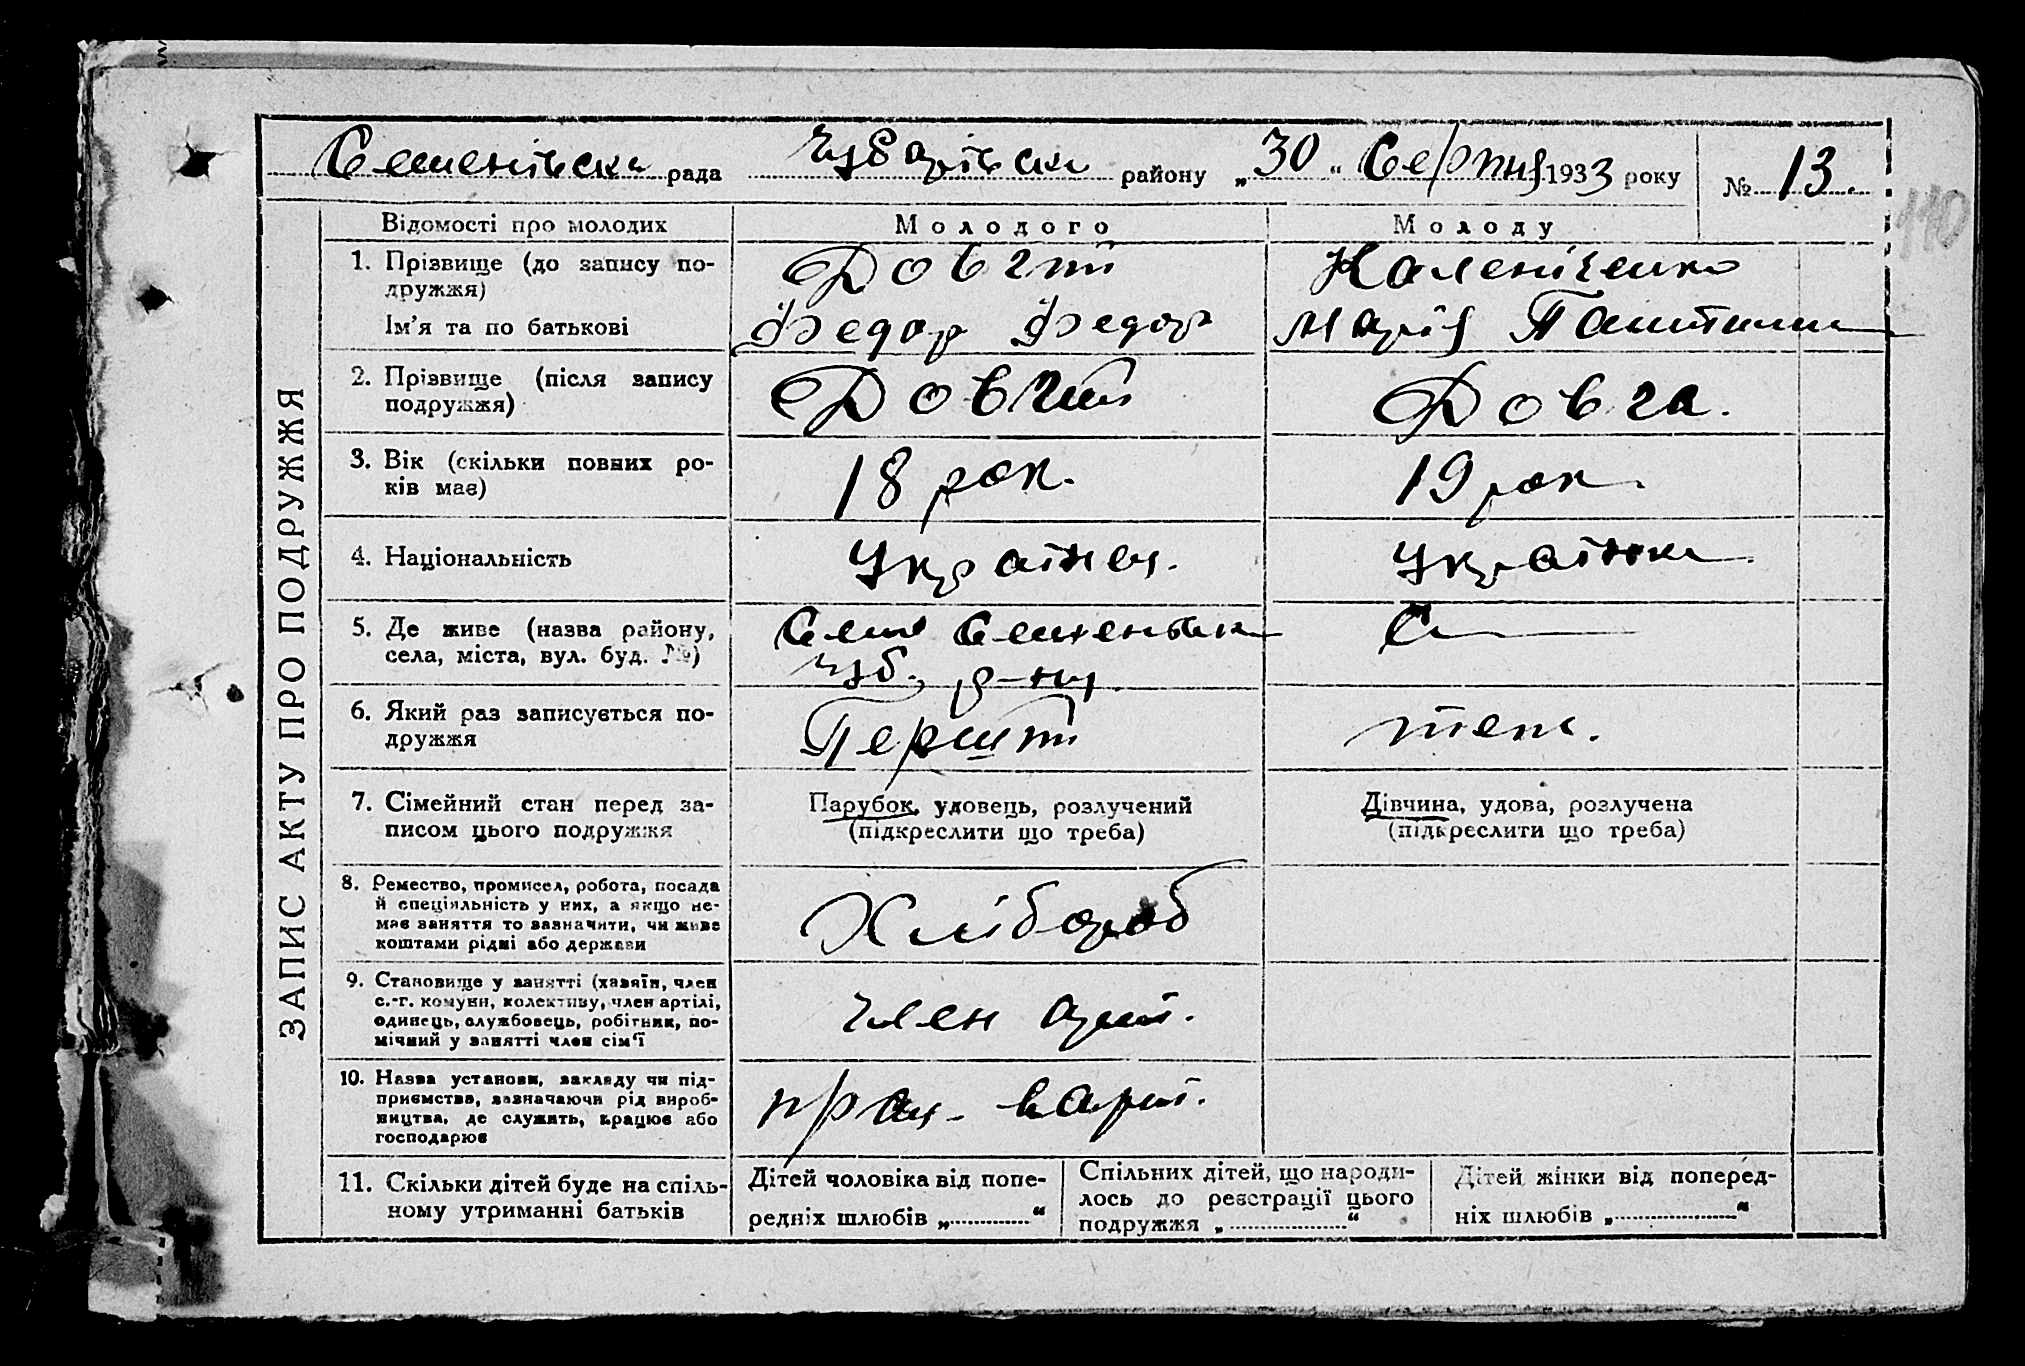 Семенівська рада Чубарівськ району „30“ Серпня 1933 року № 13.
110
ЗАПИС АКТУ ПРО ПОДРУЖЖЯ
Відомості про молодих Молодого Молоду
1. Прізвище (до запису по-
дружжя)
Довгий Каленіченко
Ім'я та по батькові
Федор Федор Марія
2. Прізвище (після запису
подружжя)
Довгий Довга.
3. Вік (скільки повних ро-
ків має)
18 рок. 19 рок.
4. Національність
Українец. Українка.
5. Де живе (назва району,
села, міста, вул. буд. №)
Село Семенівка
Чуб. р-ну
6. Який раз записується по-
дружжя
Перший теж.
7. Сімейний стан перед за-
писом цього подружжя
Парубок, удовець, розлучений
(підкреслити що треба)
Дівчина, удова, розлучена
(підкреслити що треба)
8. Ремество, промисел, робота, посада
й спеціяльність у них, а якщо не-
має заняття то зазначити, чи живе
коштами рідні або держави
Хлібороб
9. Становище у занятті (хазяїн, член
с.-г. комуни, колективу, член артілі,
одинець, службовець, робітник, по-
мічний у занятті член сім'ї
член арті.
10. Назва установи, закладу чи під-
приємства, зазначаючи рід вироб-
ництва, де служить, працює або
господарює
прац. в арті.
11. Скільки дітей буде на спіль-
ному утриманні батьків
Дітей чоловіка від попе-
редніх шлюбів „..............“
Спільних дітей, що народи-
лось до реєстрації цього
подружжя „..............“
Дітей жінки від поперед-
ніх шлюбів „..............“